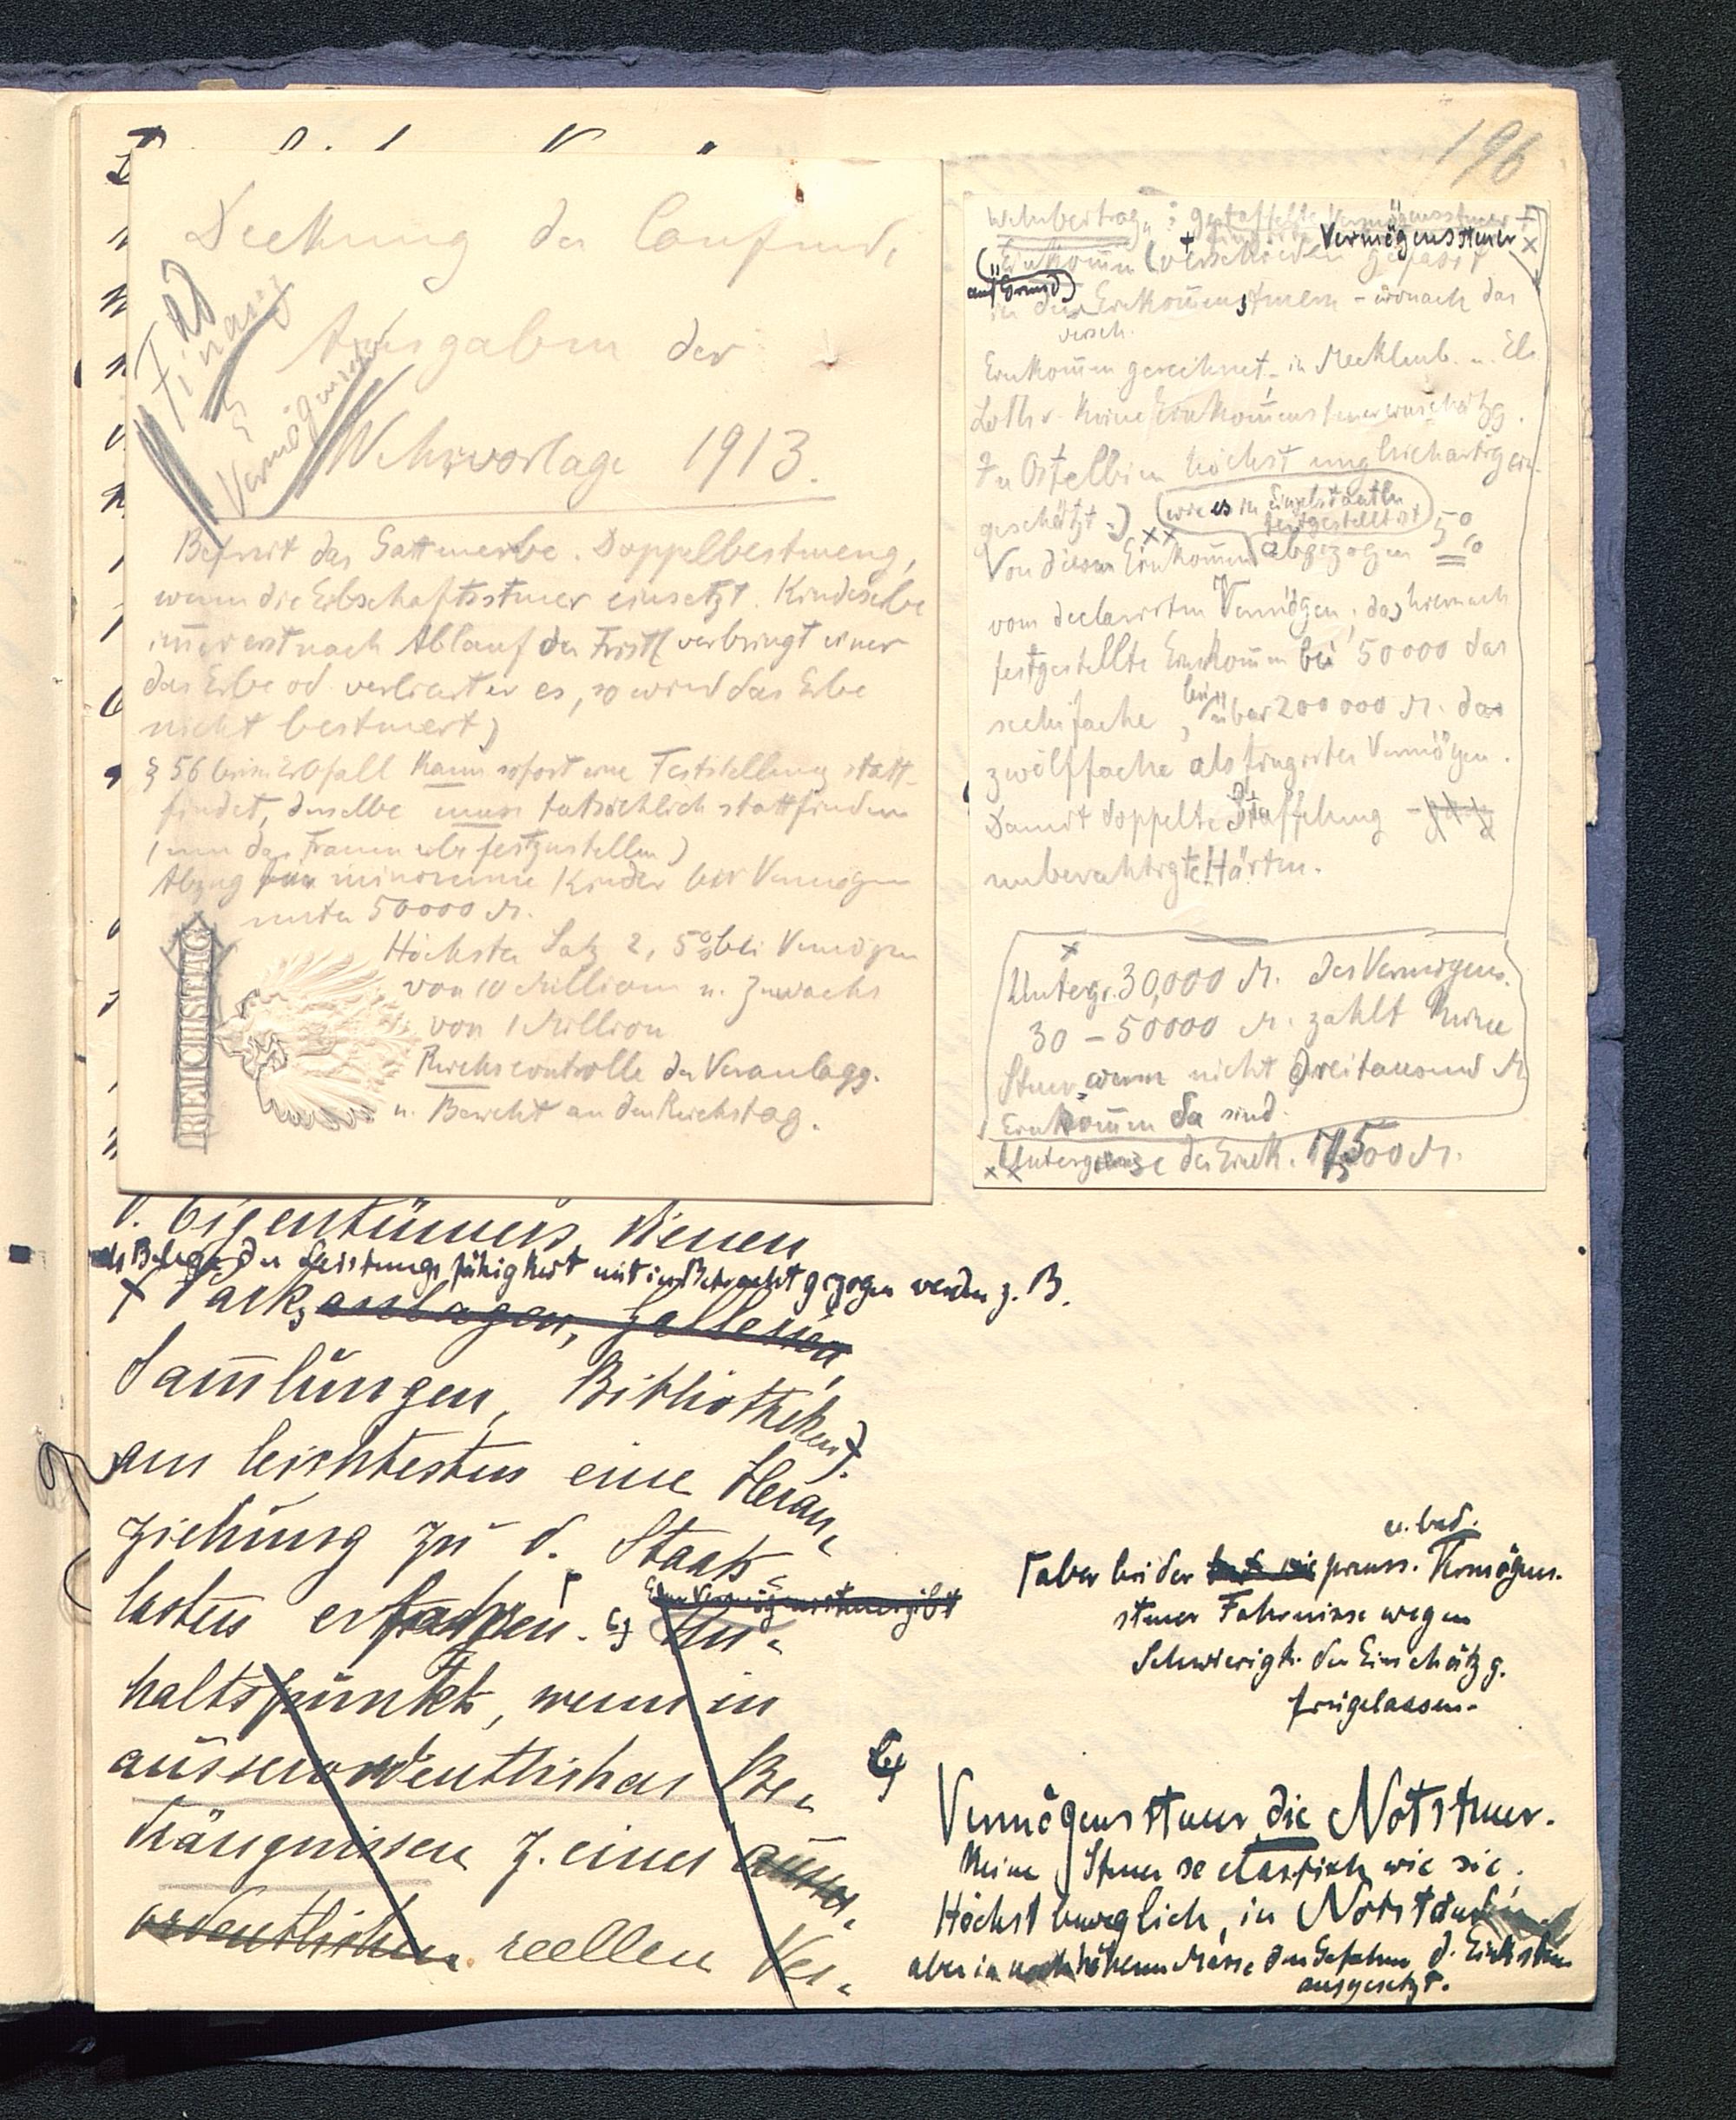 196
Deckung der laufend.
Ausgaben der
Wehrvorlage 1913.
Finanz
Vermögens
Befreit das Gattenerbe. Doppelbesteuerg,
wenn die Erbschaftssteuer einsetzt. Kindeserbe
im̄er erst nach Ablauf der Frist (verbringt einer
das Erbe od. verliert er es, so wird das Erbe
nicht besteuert)
§ 56 beim Erbfall kann sofort eine Feststellung statt-
findet, dieselbe muss tatsächlich stattfinden
(um das Frauenerbe festzustellen)
Abzug für minorenne Kinder bei Vermögen
unter 50000 M.
Höchster Satz 2,5% bei Vermögen
von 10 Million u. Zuwachs
von 1 Million
Reichscontrolle der Veranlagg.
u. Bericht an den Reichstag.
REICHSTAG
Wehrbeitrag: gestaffelte Vermögenssteuer +
Vermögenssteuer
Einkom̄en (verschieden gefasst
auf Grund)
in den Einkom̄enssteuern - wonach das
versch.
Einkom̄en gerechnet, in Mecklenb. u. Els.
Lothr. keine Einkom̄ensteuereinschätzg.
In Ostelbien höchst ungleichartig ein-
geschätzt.) (wie es in Einzelstaaten
festgestellt ist)
Von diesem Einkom̄en abgezogen 5%
vom declarirten Vermögen; das hiernach
festgestellte Einkom̄en bei 50000 das
sechsfache, bei über 200 000 M. das
zwölffache als fingirtes Vermögen.
Damit doppelte Staffelung -
unberechtigte Härten.
Untergr. 30,000 M. des Vermögens.
30 - 50000 M. zahlt keine
Steuer, wenn nicht Dreitausend M
Einkom̄en da sind.
xx Untergrenze des Eink. 7,500 M.
d. Eigentümers dienen
als Belege der Leistungsfähigkeit mit in Betracht gezogen werden z. B.
+ Parks anlagen, Gallerien,
Sam̄lungen, Bibliotheken).
am leichtesten eine Heran-
ziehung zu d. Staats-
lasten erfahren.
Eine Vermögenssteuer gibt
An-
haltspunkte, wenn in
ausserordentlichen Be-
drängnissen z. einer ausser-
ordentlichen reellen Ver-
u. bad.
aber bei der preuss. Vermögens-
steuer Fahrnisse wegen
Schwierigk. der Einschätzg.
freigelassen.
Vermögenssteuer die Notsteuer.
Keine Steuer so elastisch wie sie.
Höchst beweglich, in Notständen
aber in noch höherem Masse den Gefahren d. Einksteu
ausgesetzt.